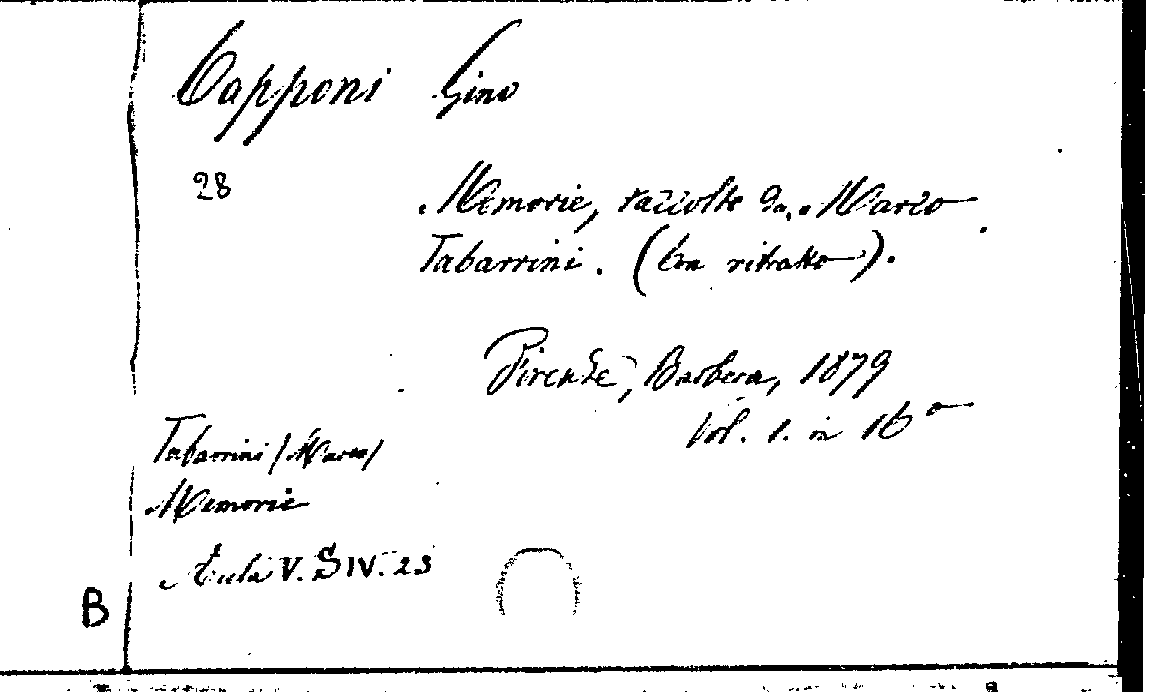 Capponi Gino
28
Memorie, raccolte da Marco
Tabarrini. (Con ritratto).
Firenze, Barbera, 1879
Vol. 1. in 16°
Tabarrini (Marco)
Memorie
Aula V. S IV. 23
B